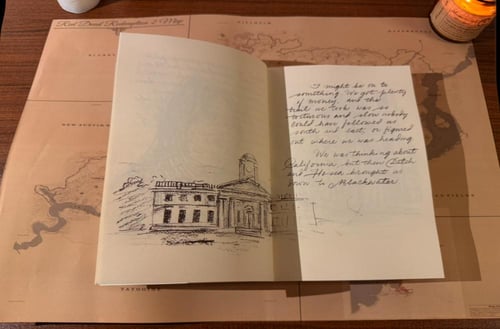 Red Dead Redemption 2 Map
I might be on to
something. We got plenty
of money, and the
trail we took was so
tortuous and slow nobody
could have followed us
south and east, or figured
out where we was heading.
We was thinking about
California but then Dutch
and Hosea brought us
down to Blackwater